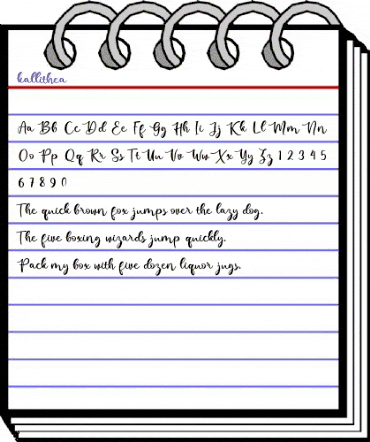 kallithea
Aa Bb Cc Dd Ee Ff Gg Hh Ii Jj Kk Ll Mm Nn
Oo Pp Qq Rr Ss Tt Uu Vv Ww Xx Yy Zz 1 2 3 4 5
6 7 8 9 0
The quick brown fox jumps over the lazy dog.
The five boxing wizards jump quickly.
Pack my box with five dozen liquor jugs.